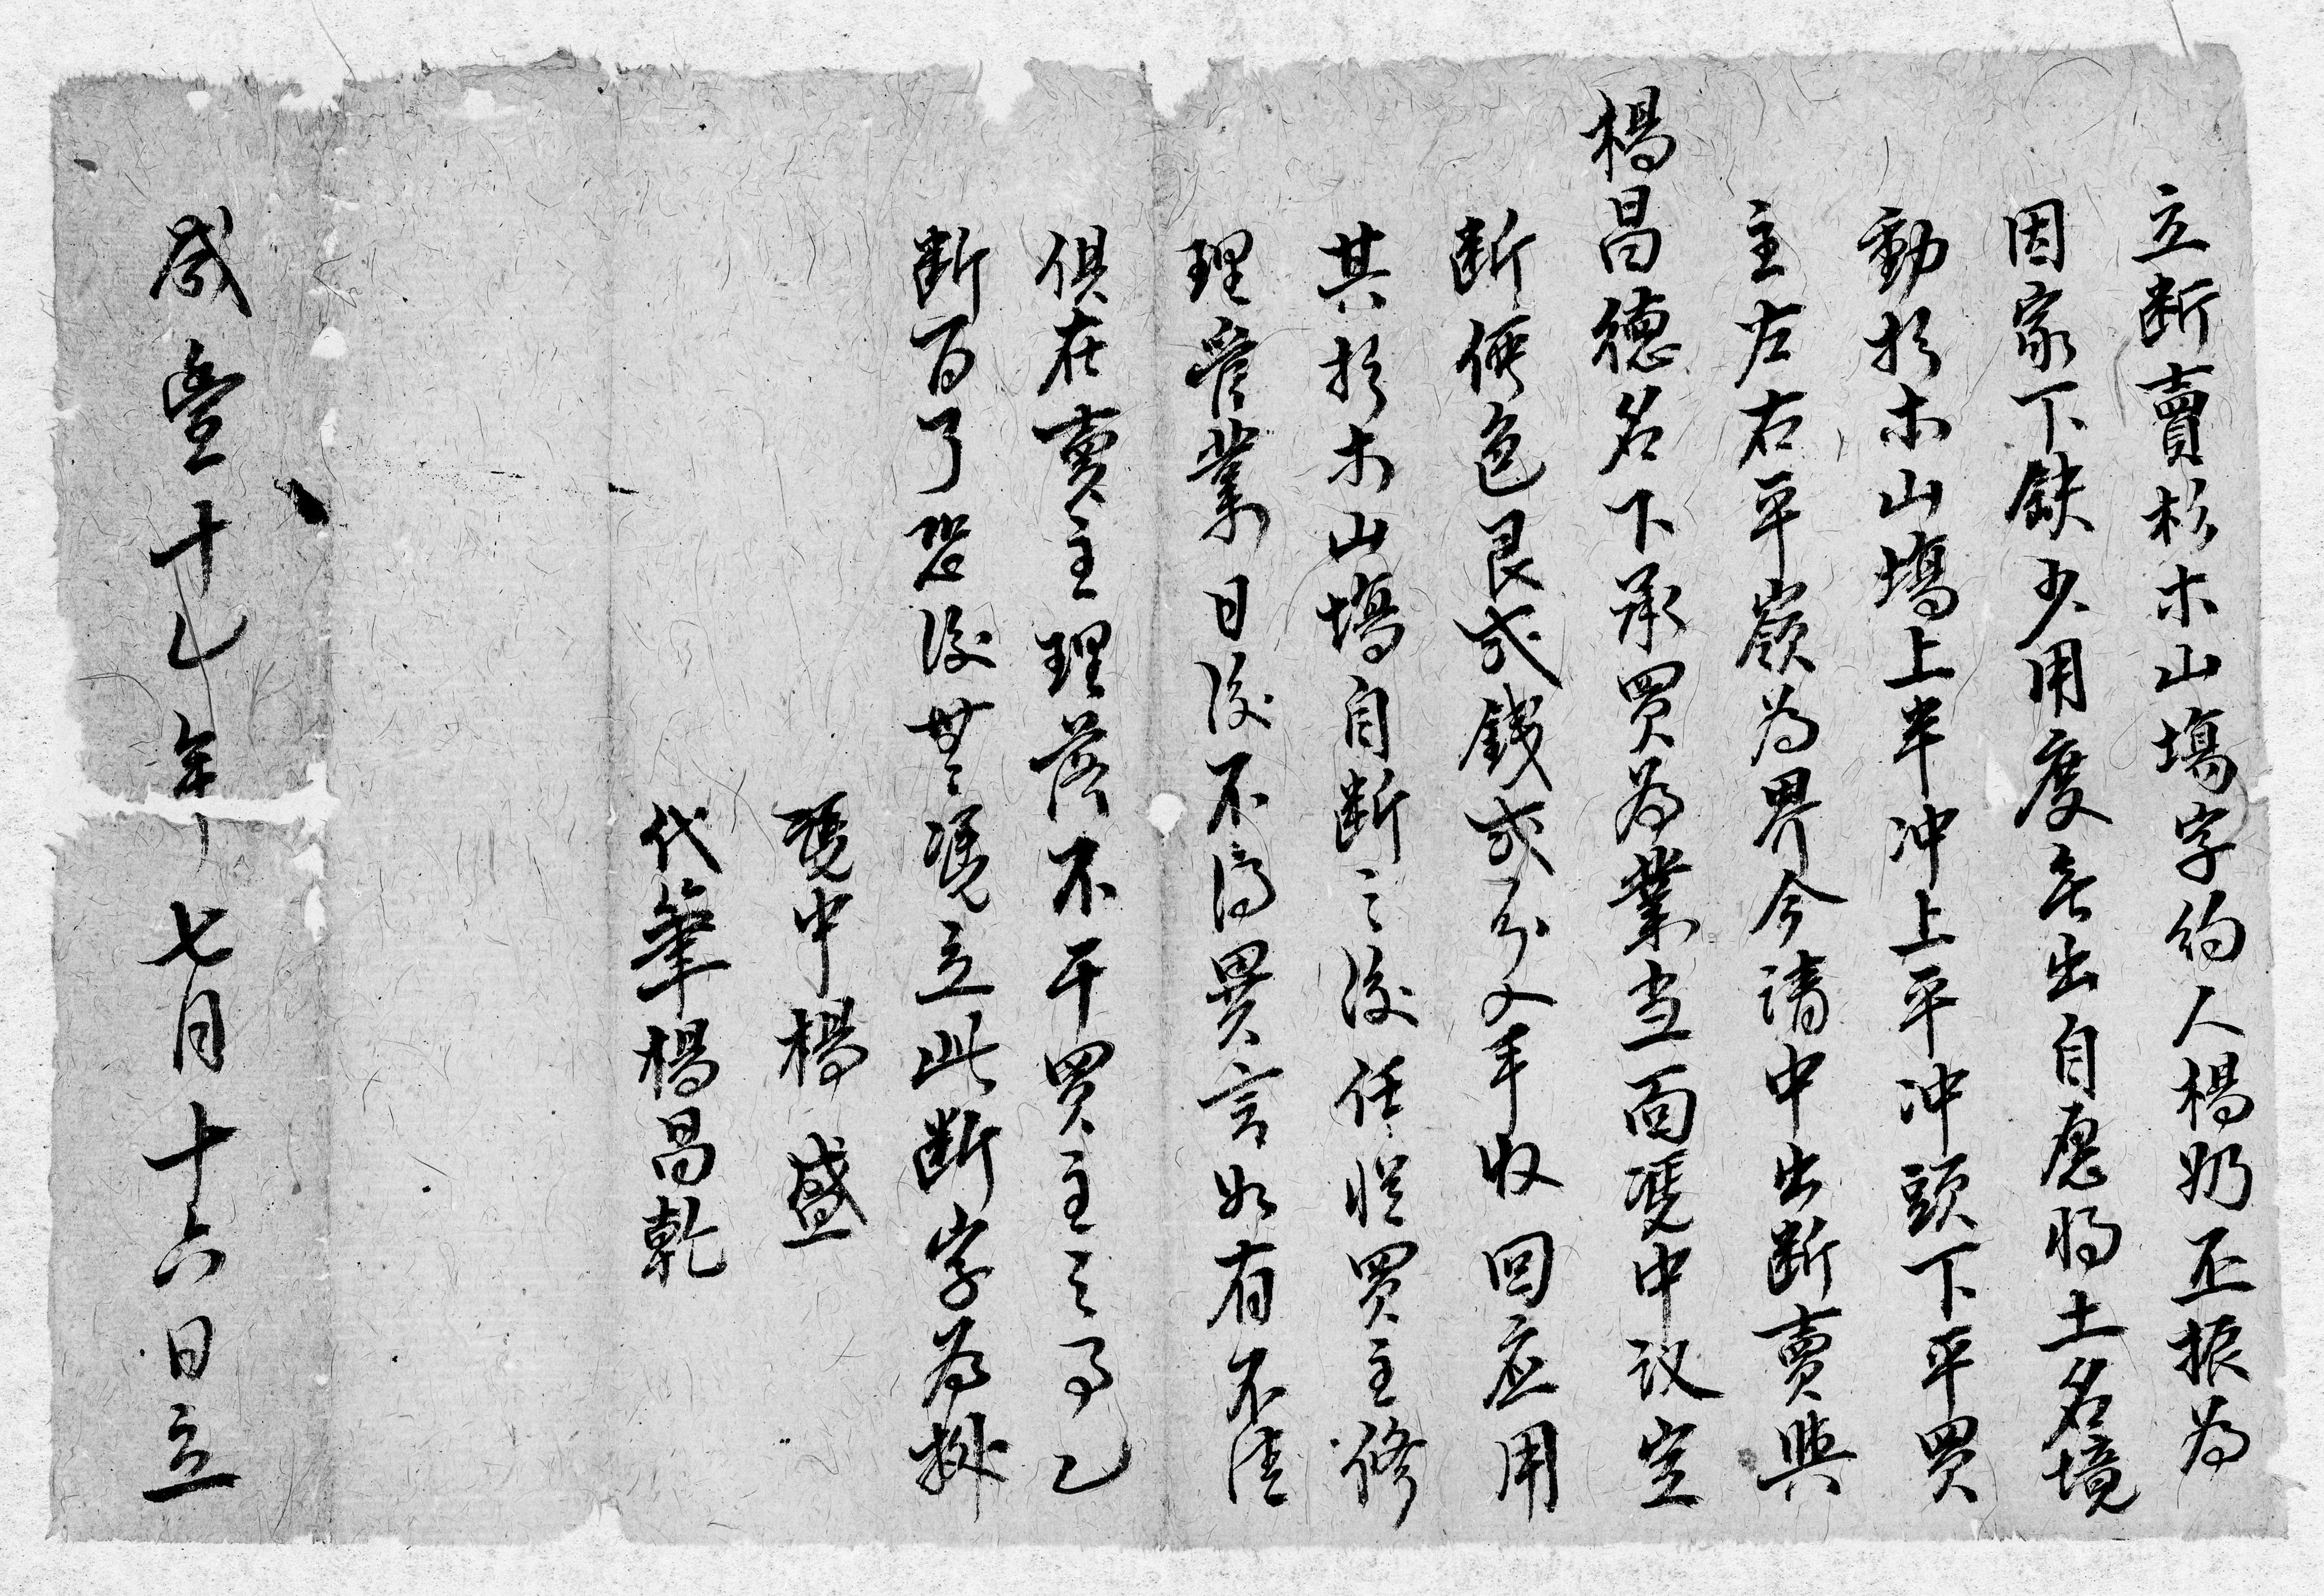 立断賣杉木山塲字約人楊奶丕振為
因家下缺少用度無出自愿将土名境
動杉木山塲上半冲上平冲頭下平買
主左右平嶺為界今請中出断賣與
楊昌德名下承買為業当面凴中议定
断價色艮弍錢弍分入手收回应用
其杉木山塲自断之後任從買主修
理管業日後不得異言如有不清
俱在賣主理落不干買主之事乙
断百了恐後無凴立此断字為掛
凴中楊 盛
代筆楊昌乾
咸豊十乙年七月十六日立